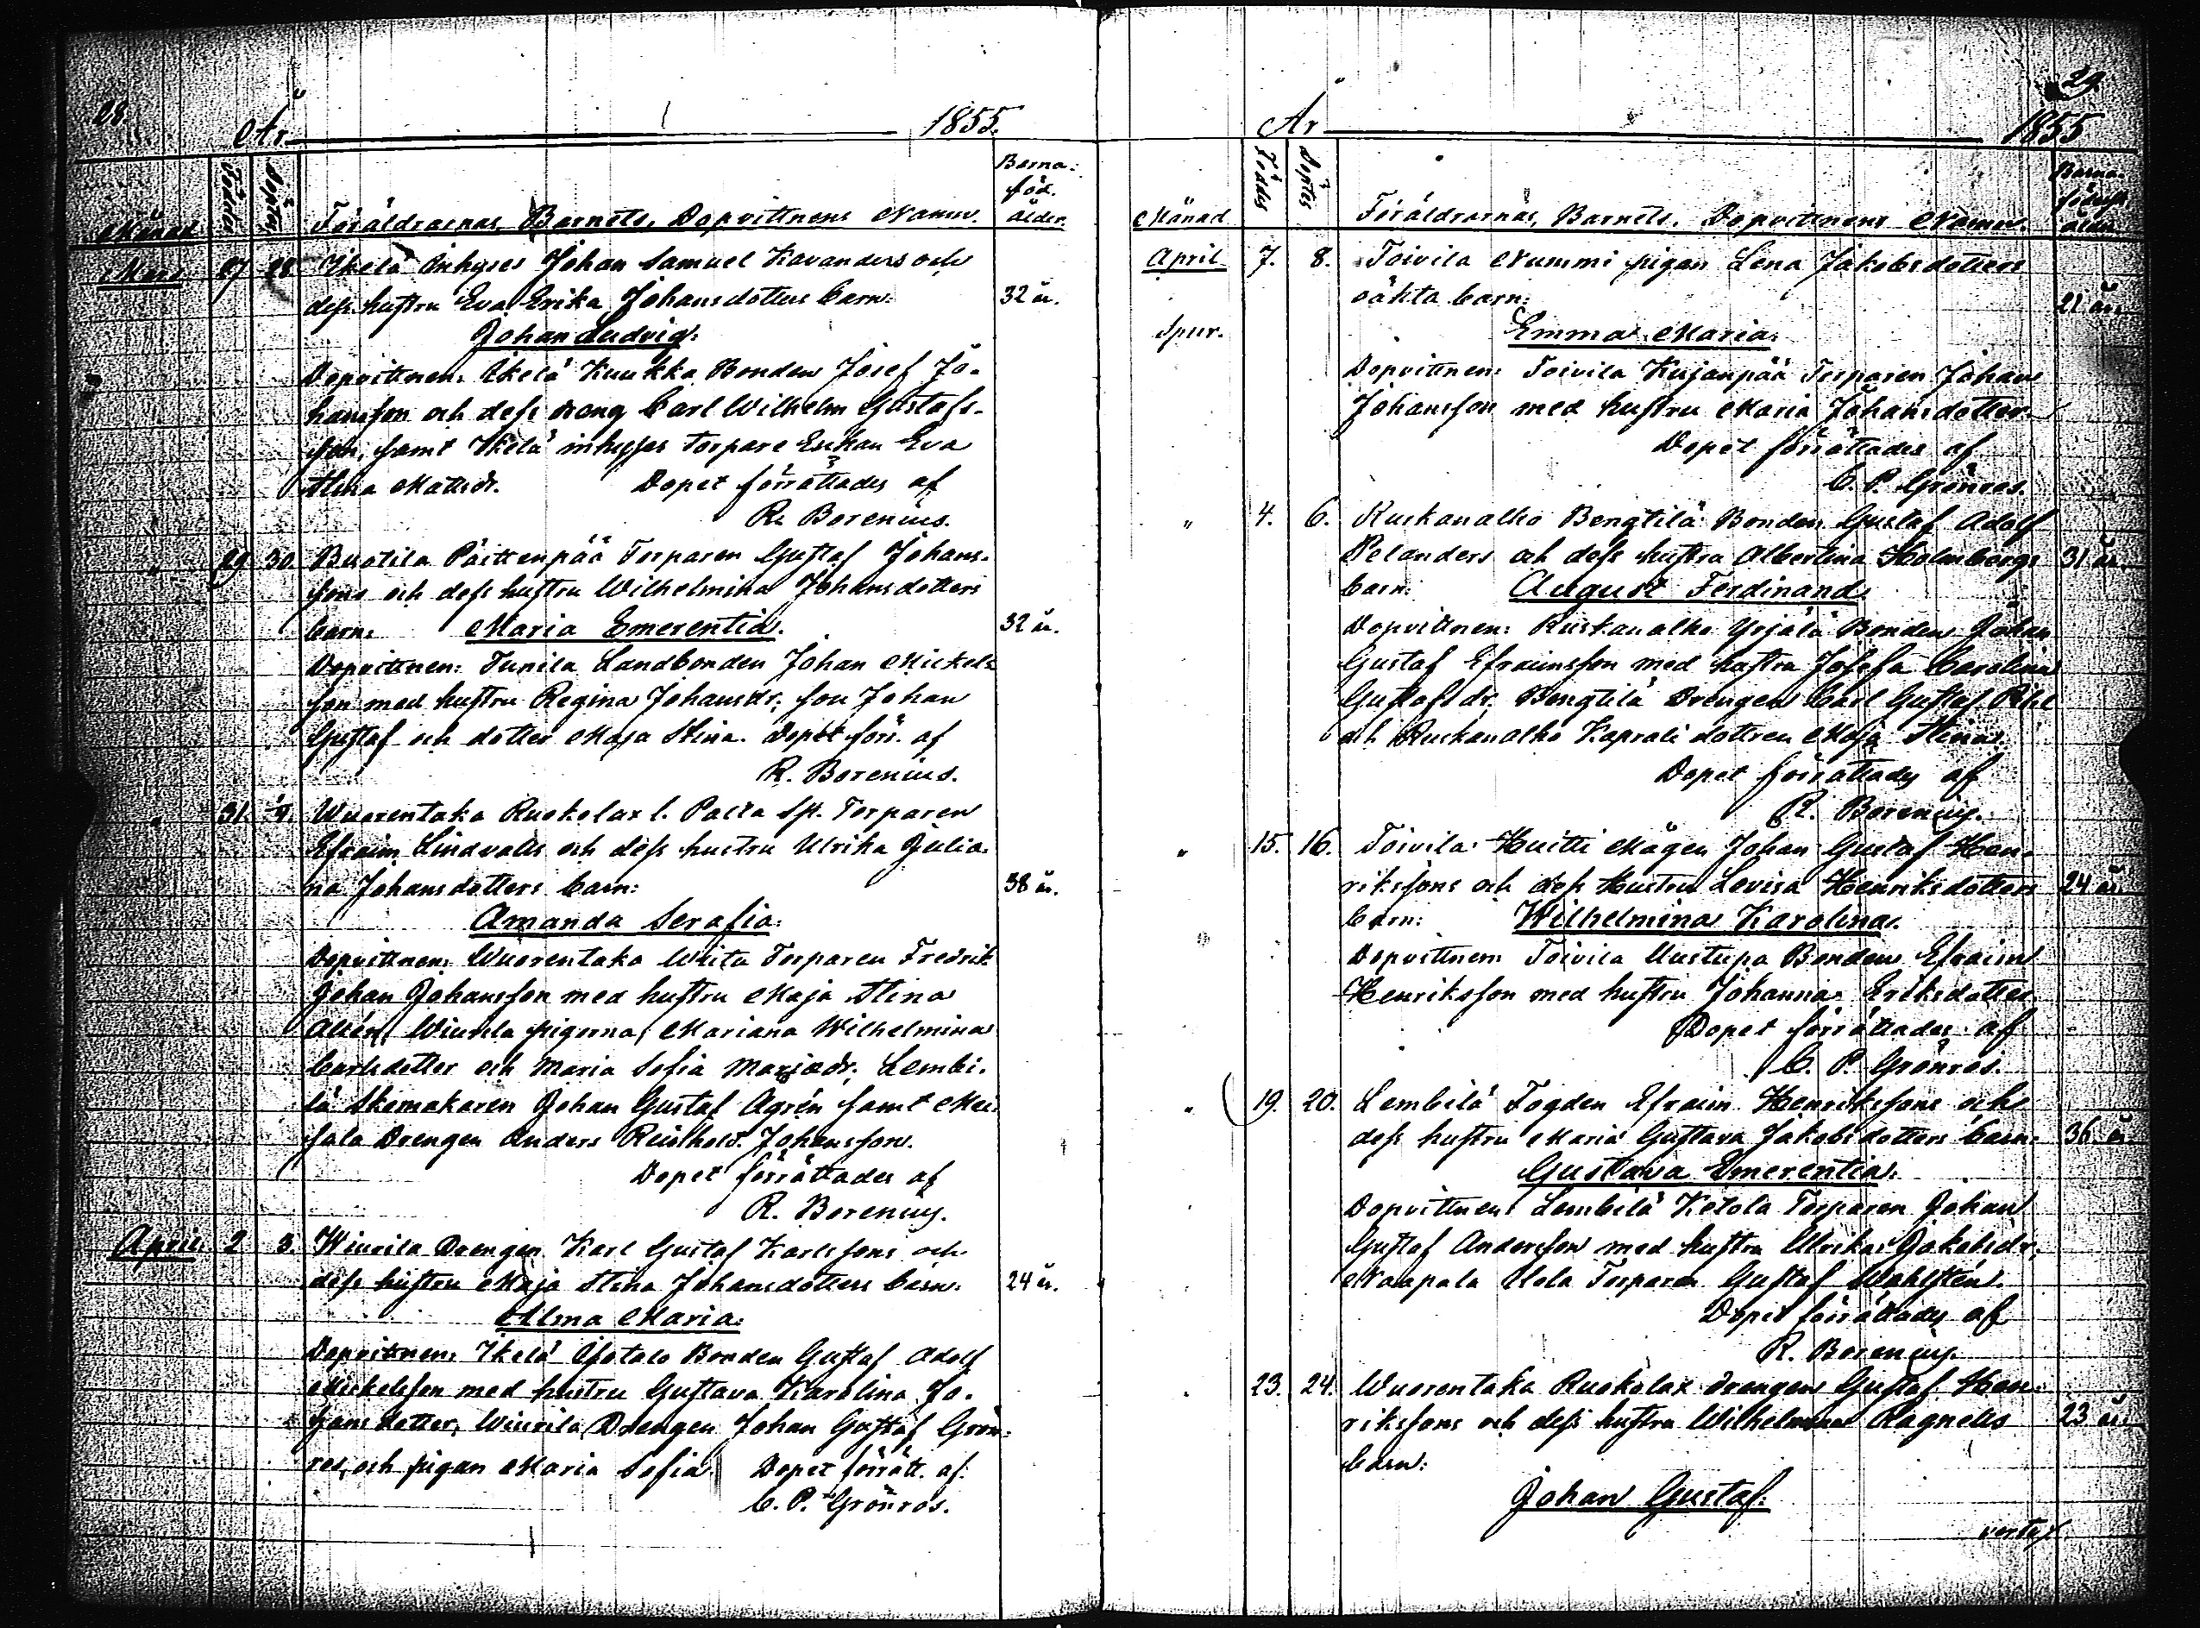 28.
År 1855.
Månad Föddes Döptes Föräldrarnas Barnets, Dopvittnens Namn. Barna: föd. ålder.
Mars 27 28 Ikelä Inhyses Johan Samuel Kavanders och
dess hustru Eva Erika Johansdotters barn: 32 år.
Johan Ludvig.
Dopvittnen: Ikelä Kuukka Bonden Josef Jo-
hansson och dess dräng Carl Wilhelm Gustafs-
son, samt Ikelä inhyses Torpare Enkan Eva
Stina Mattsdr. Dopet förrättades af
R. Borenius.
" 29 30. Buotila Päittenpää Torparen Gustaf Johans-
sons och dess hustru Wilhelmina Johansdotters
barn: Maria Emerentia. 32 år.
Dopvittnen: Tunila Landbonden Johan Mickels-
son med hustru Regina Johansdr, son Johan
Gustaf och dotter Maja Stina. Dopet förr. af
R. Borenius.
" 31. Wuorentaka Ruokolax l. Palta Sp. Torparen
Efraim Lindvalls och dess hustru Ulrika Julia-
na Johansdotters barn: 38 år.
Amanda Serafia.
Dopvittnen: Wuorentaka Torparen Fredrik
Johan Johansson med hustru Maja Stina
Alléns Wiurila pigorna, Mariana Wilhelmina
Carlsdotter och Maria Sofia Mariædr, Lembi-
lä Skomakaren Johan Gustaf Agrén samt Mei-
sala Drengen Anders Reinhold Johansson.
Dopet förrättades af
R. Borenius.
April. 2 3. Wiurila Drengen Karl Gustaf Karlssons och
dess hustru Maja Stina Johansdotters barn. 24 år.
Alma Maria.
Dopvittnen: Ikelä Isotalo Bonden Gustaf Adolf
Mickelsson med hustru Gustava Karolina Jo-
hansdotter, Wiurila Drengen Johan Gustaf Grön-
ros, och pigan Maria Sofia. Dopet förrätt. af.
C. P. Grönros.
29
År 1855
Månad Föddes Döptes Föräldrarnas, Barnets, Dopvittnens Namn. Barna- ålder
April 7. 8. Toivila Nummi pigan Lena Jakobsdotters
oäkta barn: 21 år.
Spur. Emma Maria.
Dopvittnen: Toivila Kujanpää Torparen Johan
Johansson med hustru Maria Johansdotter.
Dopet förrättades af
C. P. Grönros.
" 4. 6. Ruskanalho Bengtilä Bonden Gustaf Adolf
Pelanders och dess hustru Albertina Holmbergs 31 år.
barn: August Ferdinand.
Dopvittnen: Ruskanalho Yrjälä Bonden Johan
Gustaf Efraimsson med hustru Josefa Carolina
Gustafsdr. Bengtilä Drengen Carl Gustaf
och Ruskanalho Kaprals dottren Maja Stina.
Dopet förrättades af
R. Borenius.
" 15. 16. Toivila Huitti Mågen Johan Gustaf Hen-
rikssons och dess Hustru Lovisa Henriksdotters 24 år
barn: Wilhelmina Karolina.
Dopvittnen: Toivila Uustupa Bonden Efraim
Henriksson med hustru Johanna Eriksdotter.
Dopet förrättades af
C. P. Grönros.
" 19. 20. Lembilä Fogden Efraim Henrikssons och
dess hustru Maria Gustava Jakobsdotters barn. 36 år.
Gustava Emerentia.
Dopvittnen: Lembilä Ketola Torparen Johan
Gustaf Andersson med hustru Ulrika Jakobsdr,
Naapala Uola Torparen Gustaf Wahlstén.
Dopet förrättades af
R. Borenius.
23. 24. Wuorentaka Ruokolax drengen Gustaf Hen-
rikssons och dess hustru Wilhelmina Ragnells 23 år.
barn:
Johan Gustaf.
vertas